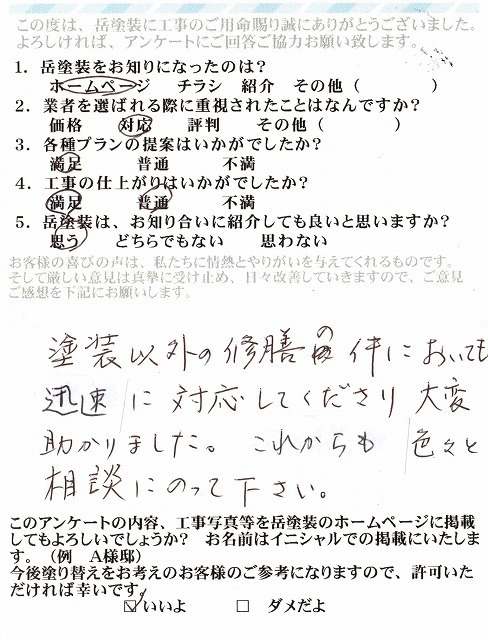 この度は、岳塗装に工事のご用命賜り誠にありがとうございました。
よろしければ、アンケートにご回答ご協力お願い致します。
1．岳塗装をお知りになったのは？
ホームページ　チラシ　紹介　その他（　　　　）
2．業者を選ばれる際に重視されたことはなんですか？
価格　対応　評判　その他（　　　　）
3．各種プランの提案はいかがでしたか？
満足　普通　不満
4．工事の仕上がりはいかがでしたか？
満足　普通　不満
5．岳塗装は、お知り合いに紹介しても良いと思いますか？
思う　どちらでもない　思わない
お客様の喜びの声は、私たちに情熱とやりがいを与えてくれるものです。
そして厳しい意見は真摯に受け止め、日々改善していきますので、ご意見
ご感想を下記にお願いします。
塗装以外の修膳の件においても
迅速に対応してくださり大変
助かりました。これからも色々と
相談にのって下さい。
このアンケートの内容、工事写真等を岳塗装のホームページに掲載
してもよろしいでしょうか？　お名前はイニシャルでの掲載にいたしま
す。（例　A様邸）
今後塗り替えをお考えのお客様のご参考になりますので、許可いた
だければ幸いです。
☑いいよ　□　ダメだよ